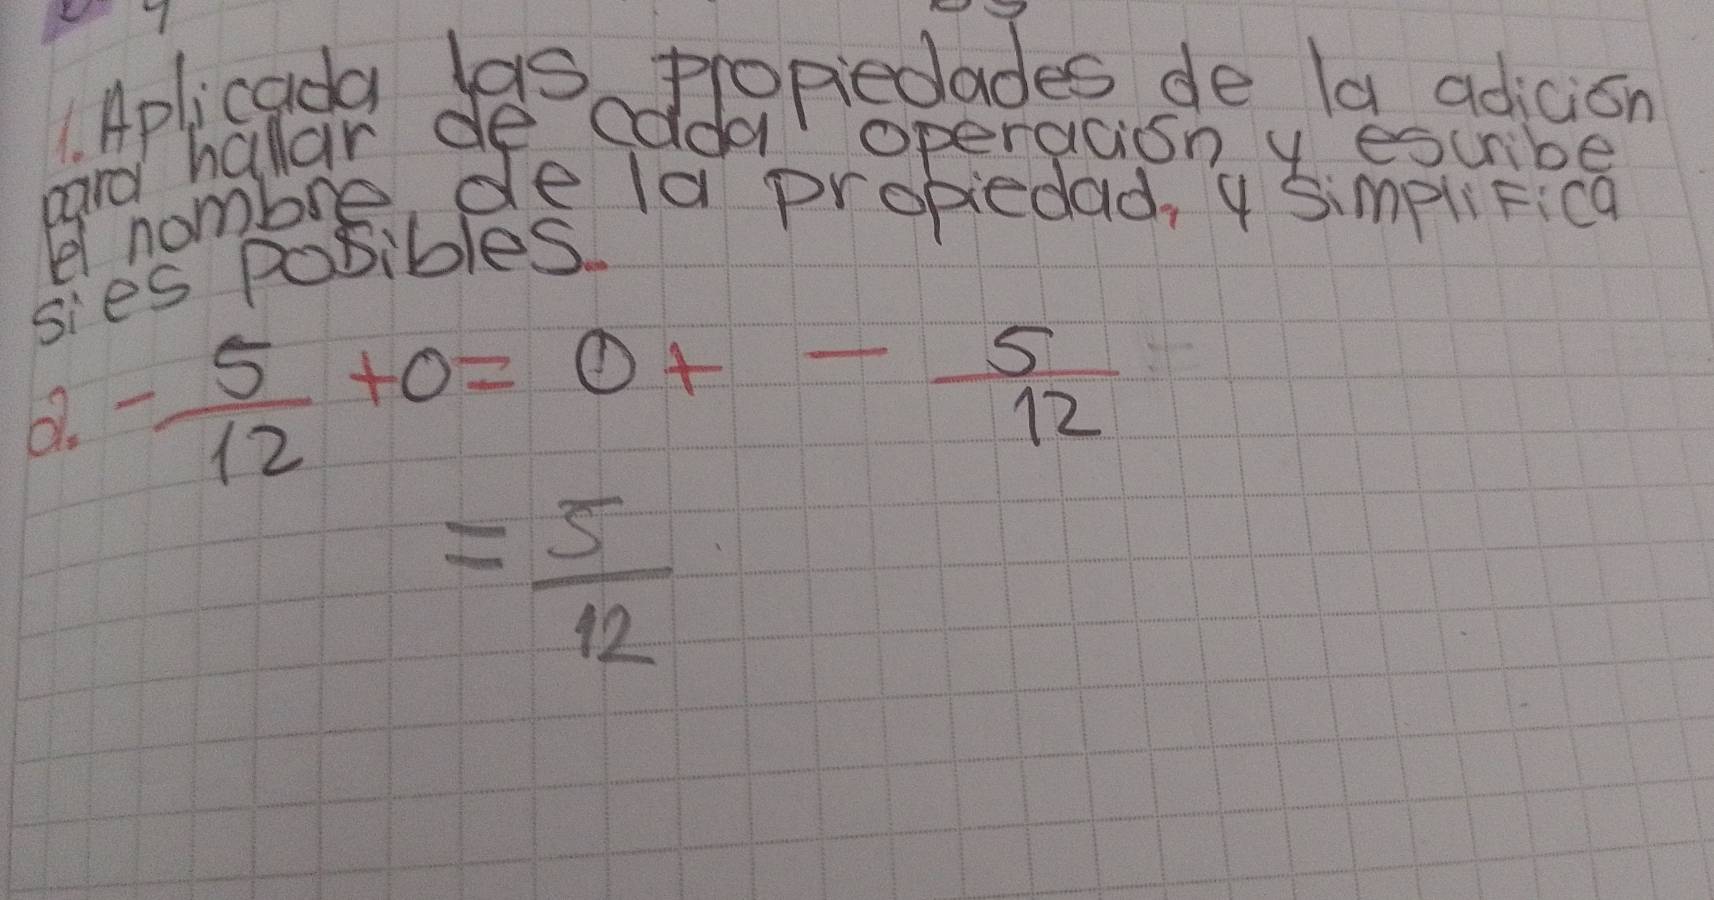 1. Aplicada las propiedades de la adición
para hallar de cada operación y escribe
el nombre de la propiedad, y simplifica
si es posibles.
d. - 5/12 + 0 = 0 + - 5/12
= 5/12